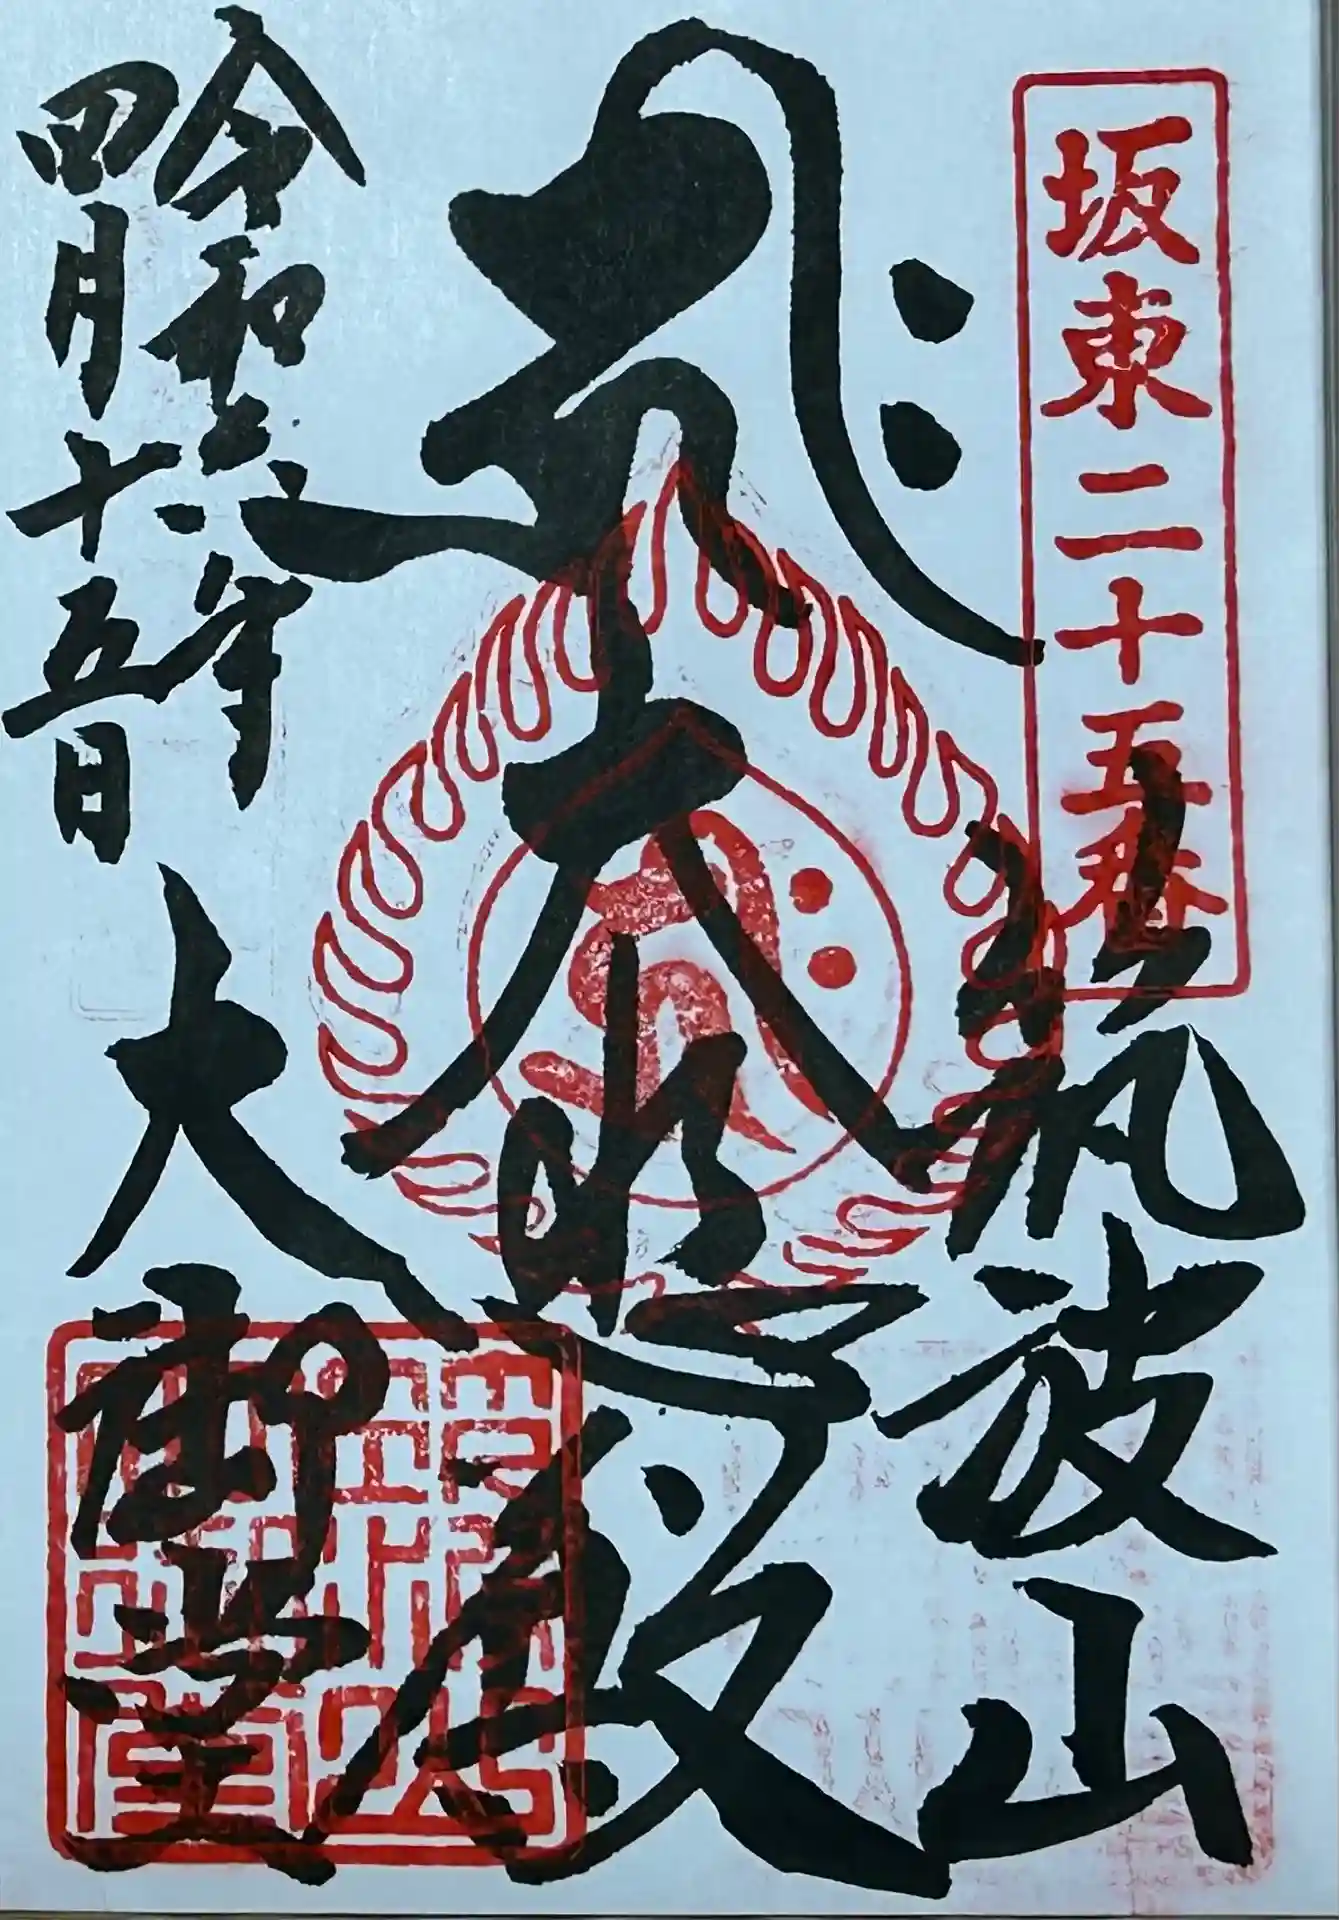 坂東二十五番
筑波山
ह्रीः
大悲殿
令和六年
四月十五日
大御堂